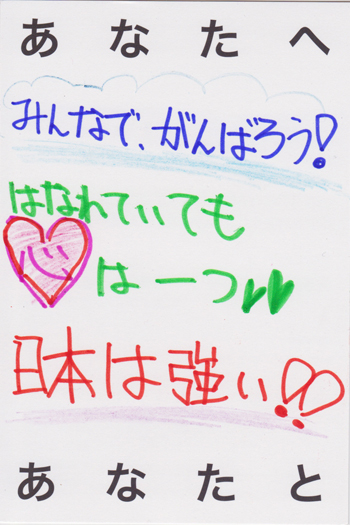 あなたへ
みんなで、がんばろう!
はなれていても
心は一つ♥♥
日本は強い!!
あなたと